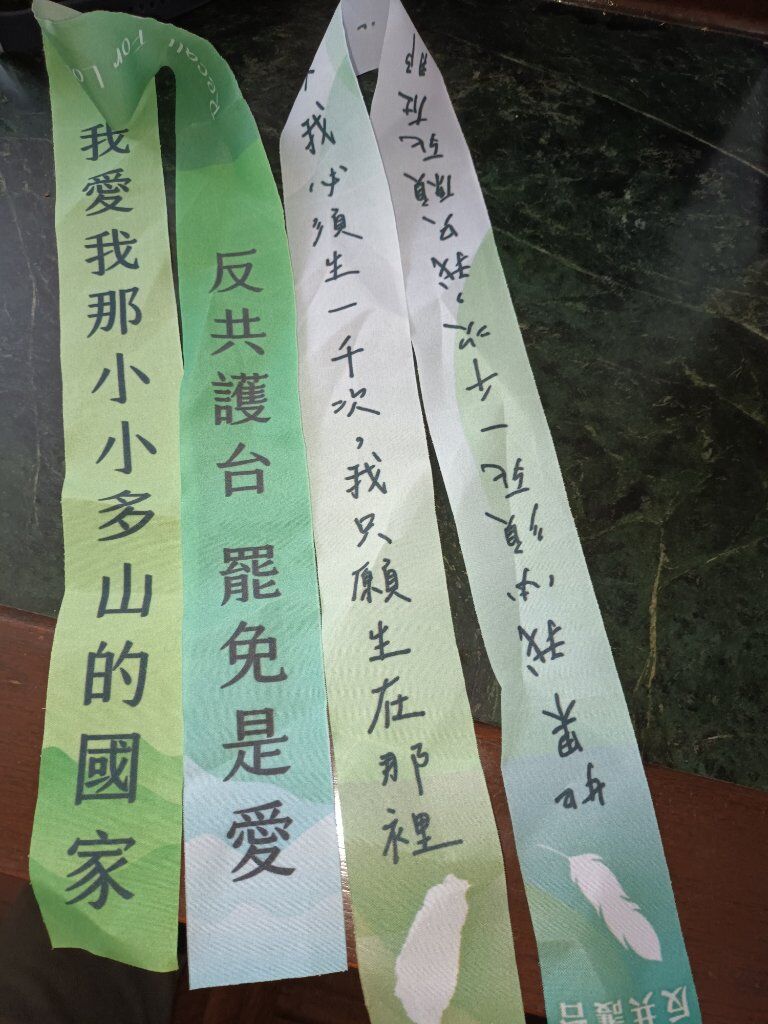 Recall For Lo
我愛我那小小多山的國家
反共護台 罷免是愛
我必須生一千次，我只願生在那裡
如果我必須死一千次，我只願死在那
反共護台